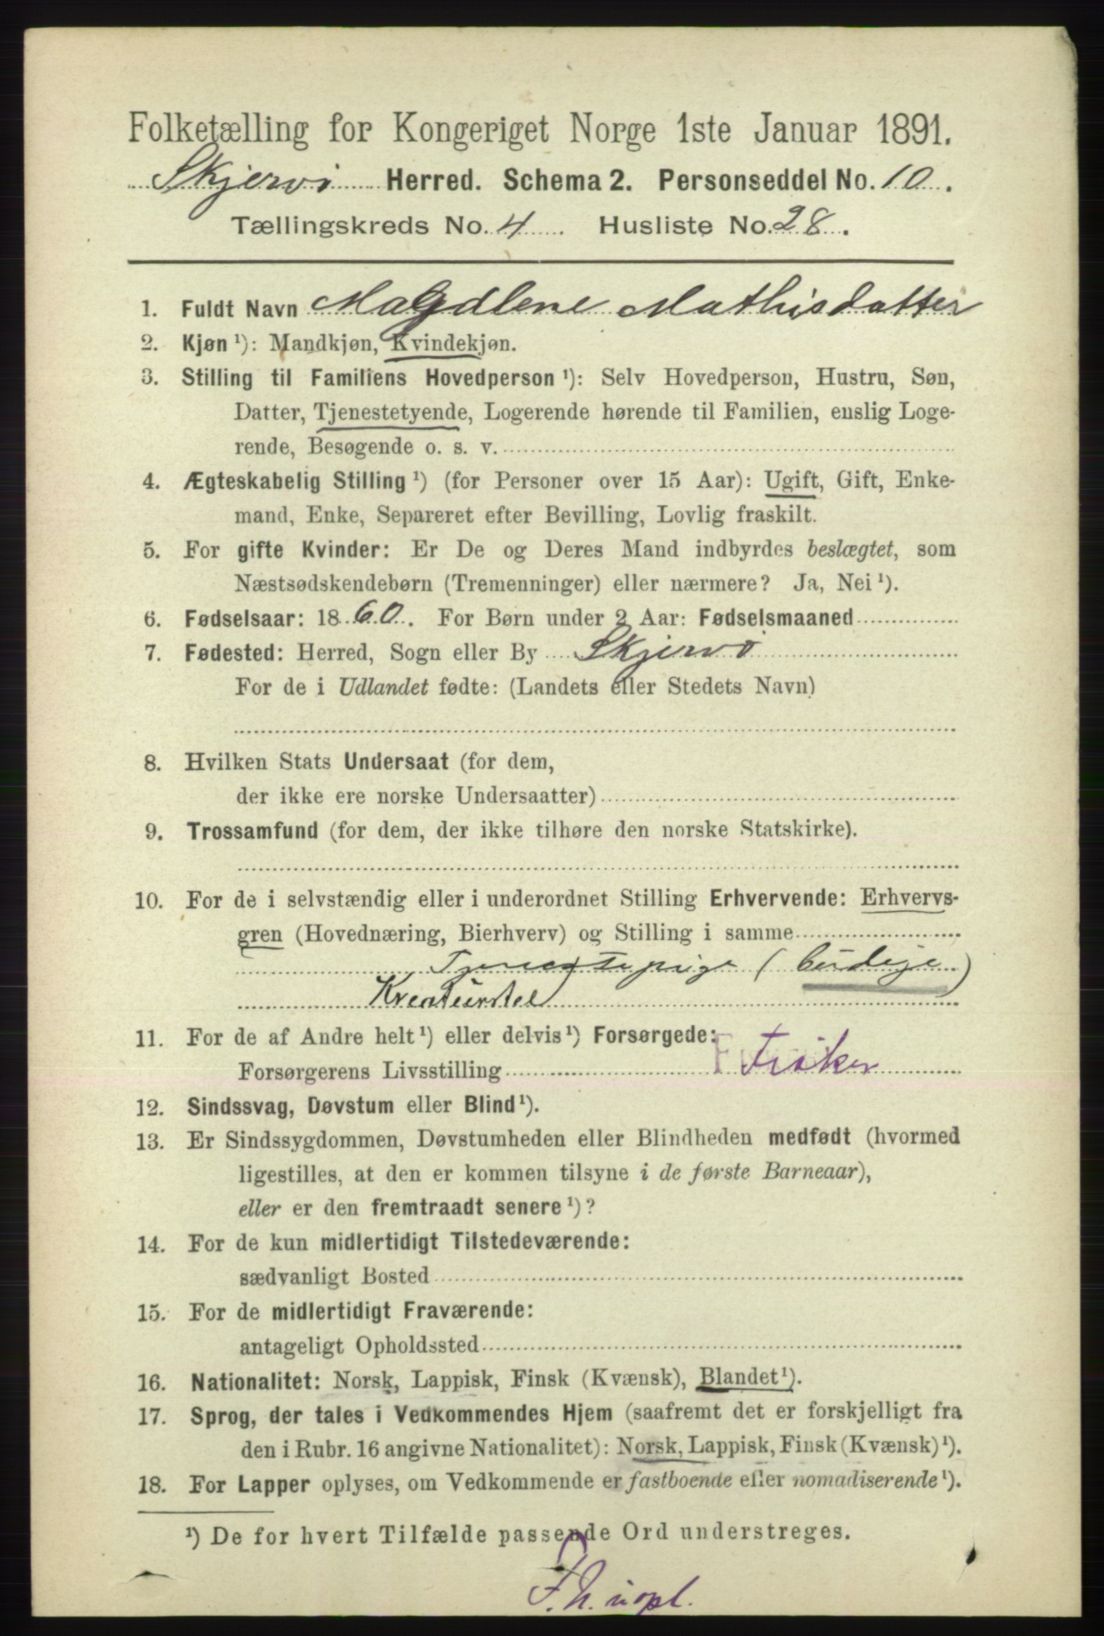 Folketælling for Kongeriget Norge 1ste Januar 1891.
Skjervö Herred. Schema 2. Personseddel No. 10.
Tællingskreds No. 4. Husliste No. 28.
1. Fuldt Navn Magdlene Mathisdatter
2. Kjøn ¹): Mandkjøn, Kvindekjøn.
3. Stilling til Familiens Hovedperson ¹): Selv Hovedperson, Hustru, Søn,
Datter, Tjenestetyende, Logerende hørende til Familien, enslig Loge-
rende, Besøgende o. s. v.
4. Ægteskabelig Stilling ¹) (for Personer over 15 Aar): Ugift, Gift, Enke-
mand, Enke, Separeret efter Bevilling, Lovlig fraskilt.
5. For gifte Kvinder: Er De og Deres Mand indbyrdes beslægtet, som
Næstsødskendebørn (Tremenninger) eller nærmere? Ja, Nei ¹).
6. Fødselsaar: 1860. For Børn under 2 Aar: Fødselsmaaned
7. Fødested: Herred, Sogn eller By Skjervö
For de i Udlandet fødte: (Landets eller Stedets Navn)
8. Hvilken Stats Undersaat (for dem,
der ikke ere norske Undersaatter)
9. Trossamfund (for dem, der ikke tilhøre den norske Statskirke).
10. For de i selvstændig eller i underordnet Stilling Erhvervende: Erhvervs-
gren (Hovednæring, Bierhverv) og Stilling i samme
Tjenestepige (budeje)
Kreaturstel
11. For de af Andre helt ¹) eller delvis ¹) Forsørgede:
Forsørgerens Livsstilling Fisker
12. Sindssvag, Døvstum eller Blind ¹).
13. Er Sindssygdommen, Døvstumheden eller Blindheden medfødt (hvormed
ligestilles, at den er kommen tilsyne i de første Barneaar),
eller er den fremtraadt senere ¹)?
14. For de kun midlertidigt Tilstedeværende:
sædvanligt Bosted
15. For de midlertidigt Fraværende:
antageligt Opholdssted
16. Nationalitet: Norsk, Lappisk, Finsk (Kvænsk), Blandet ¹).
17. Sprog, der tales i Vedkommendes Hjem (saafremt det er forskjelligt fra
den i Rubr. 16 angivne Nationalitet): Norsk, Lappisk, Finsk (Kvænsk) ¹).
18. For Lapper oplyses, om Vedkommende er fastboende eller nomadiserende ¹).
¹) De for hvert Tilfælde passende Ord understreges.